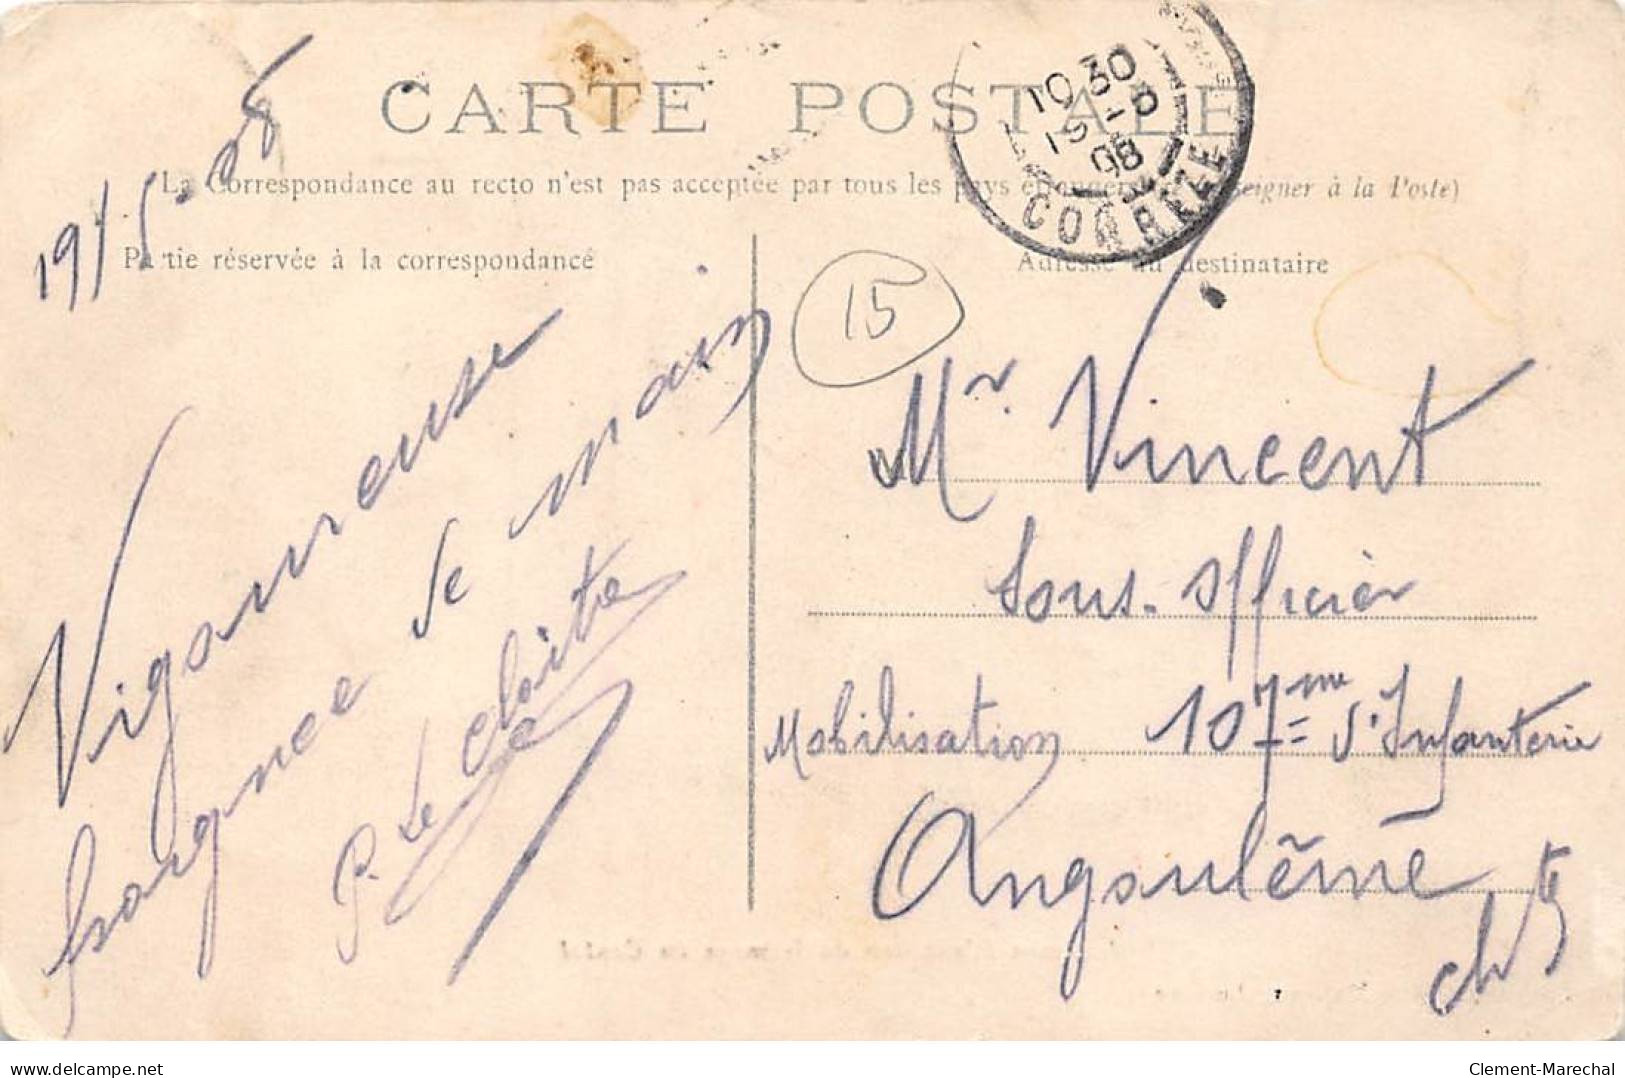 CARTE POSTALE
La Correspondance au recto n'est pas acceptée par tous les pays étrangers (Se renseigner à la Poste)
Partie réservée à la correspondance
Adresse du destinataire
10 30
19 - 5
08
CORREZE
19/5-08
15
Vigoureuse
poignée de main
P. Le Cloitre
Mr. Vincent
Sous-officier
Mobilisation 107=me d'Infanterie
Angoulême
chte
www.delcampe.net
Clement-Marechal